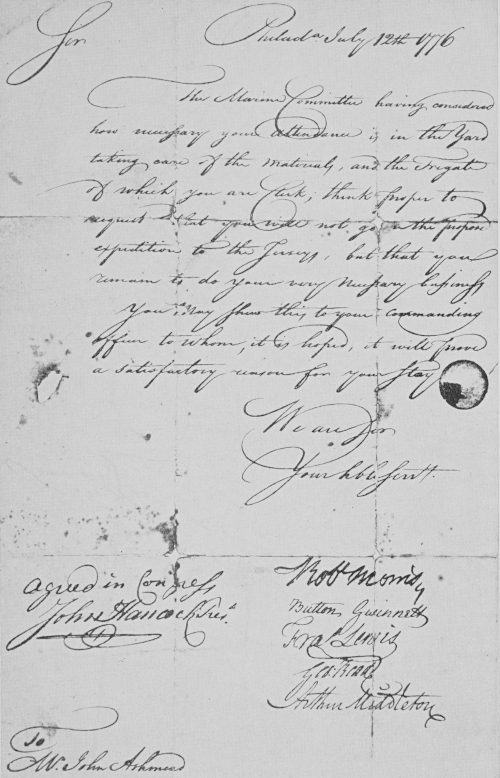 Sir
Philada July 12th 1776
The Marine Committee having considered
how necessary your attendance is in the Yard
taking care of the materials, and the Frigate
of which you are Clerk; think proper to
request that you will not go on the propos'd
expedition to the Jerseys, but that you
remain to do your very necessary business
You may shew this to your commanding
officer to whom, it is hoped, it will prove
a satisfactory reason for your stay
We are Sir
Your hble Servt.
Agreed in Congress
John Hancock Prest.
Robt Morris
Button Gwinnett
Fras. Lewis
Geo: Read
Arthur Middleton
To
Mr. John Ashmead